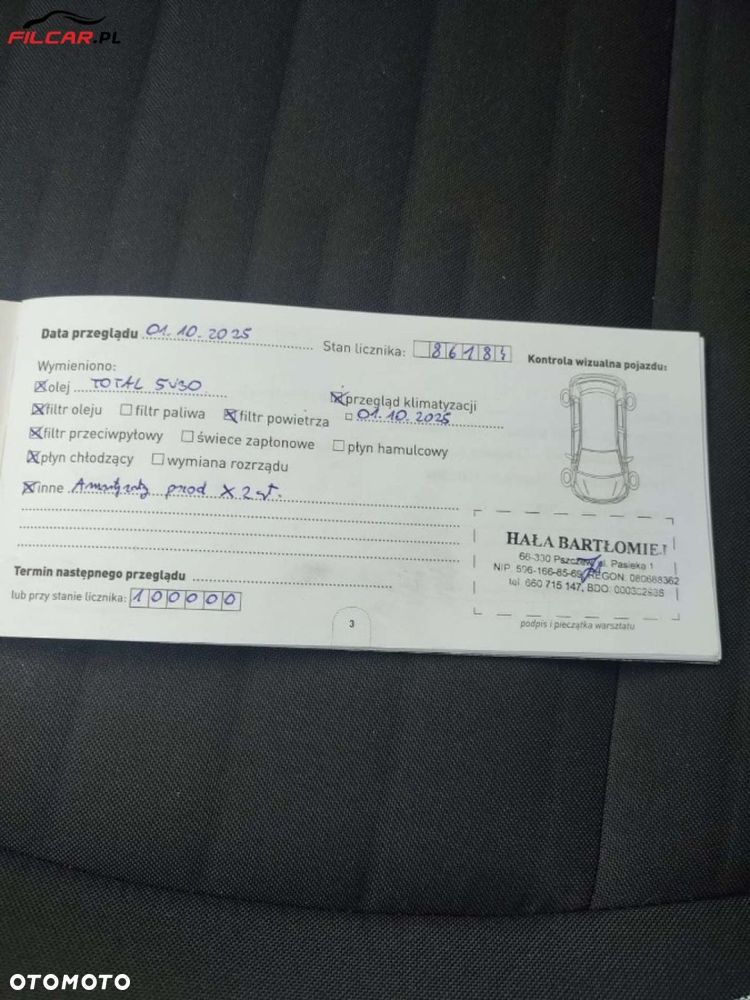 FILCAR.PL
Data przeglądu 01.10.2025
Stan licznika: 86184
Kontrola wizualna pojazdu:
Wymieniono:
olej TOTAL 5W30
przegląd klimatyzacji
filtr oleju filtr paliwa filtr powietrza 01.10.2025
filtr przeciwpyłowy świece zapłonowe płyn hamulcowy
płyn chłodzący wymiana rozrządu
inne przod x 2 szt.
HAŁA BARTŁOMIEJ
66-330 ul. Pasieka 1
NIP: 596-166-85-69, REGON: 080688362
tel. 660 715 147, BDO:
Termin następnego przeglądu
lub przy stanie licznika: 100000
podpis i pieczątka warsztatu
3
OTOMOTO